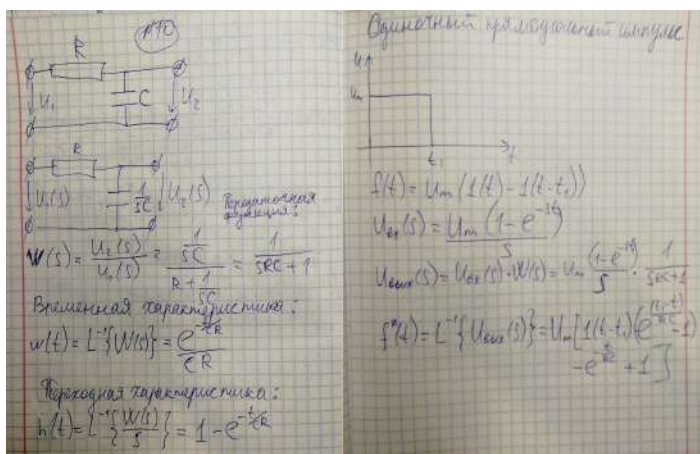 R
U₁
C
U₂
R
U₁(s)
1/sC
U₂(s)
Передаточная
функция:
W(s) = U₂(s)/U₁(s) = (1/sC)/(R + 1/sC) = 1/(sRC+1)
Временная характеристика:
w(t) = L⁻¹{W(s)} = e^(-t/CR)/CR
Переходная характеристика:
h(t) = L⁻¹{W(s)/s} = 1 - e^(-t/CR)
Одиночный прямоугольный импульс
u
Um
t₁
t
f(t) = Um(1(t) - 1(t-t₁))
Uвх(s) = Um(1 - e^(-st₁))/s
Uвых(s) = Uвх(s)·W(s) = Um (1-e^(-st₁))/s · 1/(sRC+1)
f*(t) = L⁻¹{Uвых(s)} = Um[1(t-t₁)(e^((t₁-t)/RC) - 1)
- e^(-t/RC) + 1]